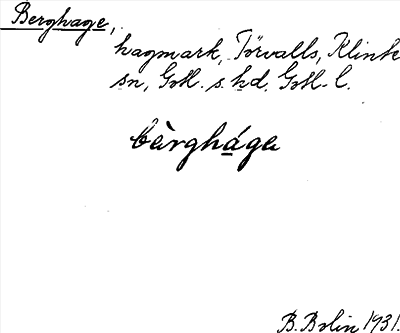 Berghage,
hagmark, Törvalls, Klinte
sn, Gotl. s. hd, Gotl. l.
bàrghága
B. Bolin 1931.